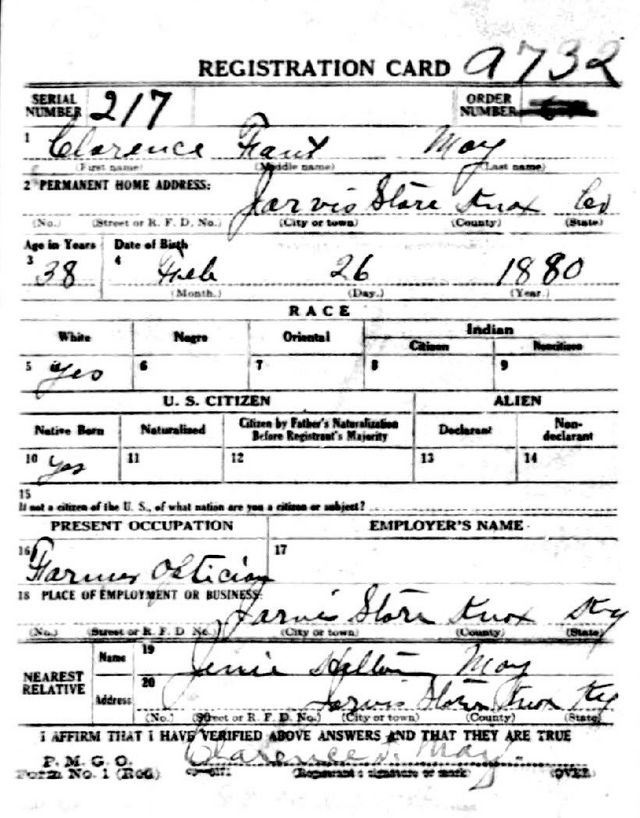 REGISTRATION CARD 9732
SERIAL NUMBER 217 ORDER NUMBER
1 Clarence May
(First name) (Middle name) (Last name)
2 PERMANENT HOME ADDRESS: Jarvis Store Knox
(No.) (Street or R. F. D. No.) (City or town) (County) (State)
Age in Years Date of Birth
3 38 4 Feb 26 1880
(Month.) (Day.) (Year.)
RACE
White Negro Oriental Indian
Citizen Noncitizen
5 Yes 6 7 8 9
U. S. CITIZEN ALIEN
Native Born Naturalized Citizen by Father's Naturalization Before Registrant's Majority Declarant Non-declarant
10 Yes 11 12 13 14
15
If not a citizen of the U. S., of what nation are you a citizen or subject?
PRESENT OCCUPATION EMPLOYER'S NAME
16 Farmer Optician 17
18 PLACE OF EMPLOYMENT OR BUSINESS:
Jarvis Store Knox Ky
(No.) (Street or R. F. D. No.) (City or town) (County) (State)
NEAREST RELATIVE Name 19 May
Address 20 Jarvis Store Knox Ky
(No.) (Street or R. F. D. No.) (City or town) (County) (State)
I AFFIRM THAT I HAVE VERIFIED ABOVE ANSWERS AND THAT THEY ARE TRUE
P. M. G. O. Clarence May
Form No. 1 (Red) (Registrant's signature or mark) (OVER)